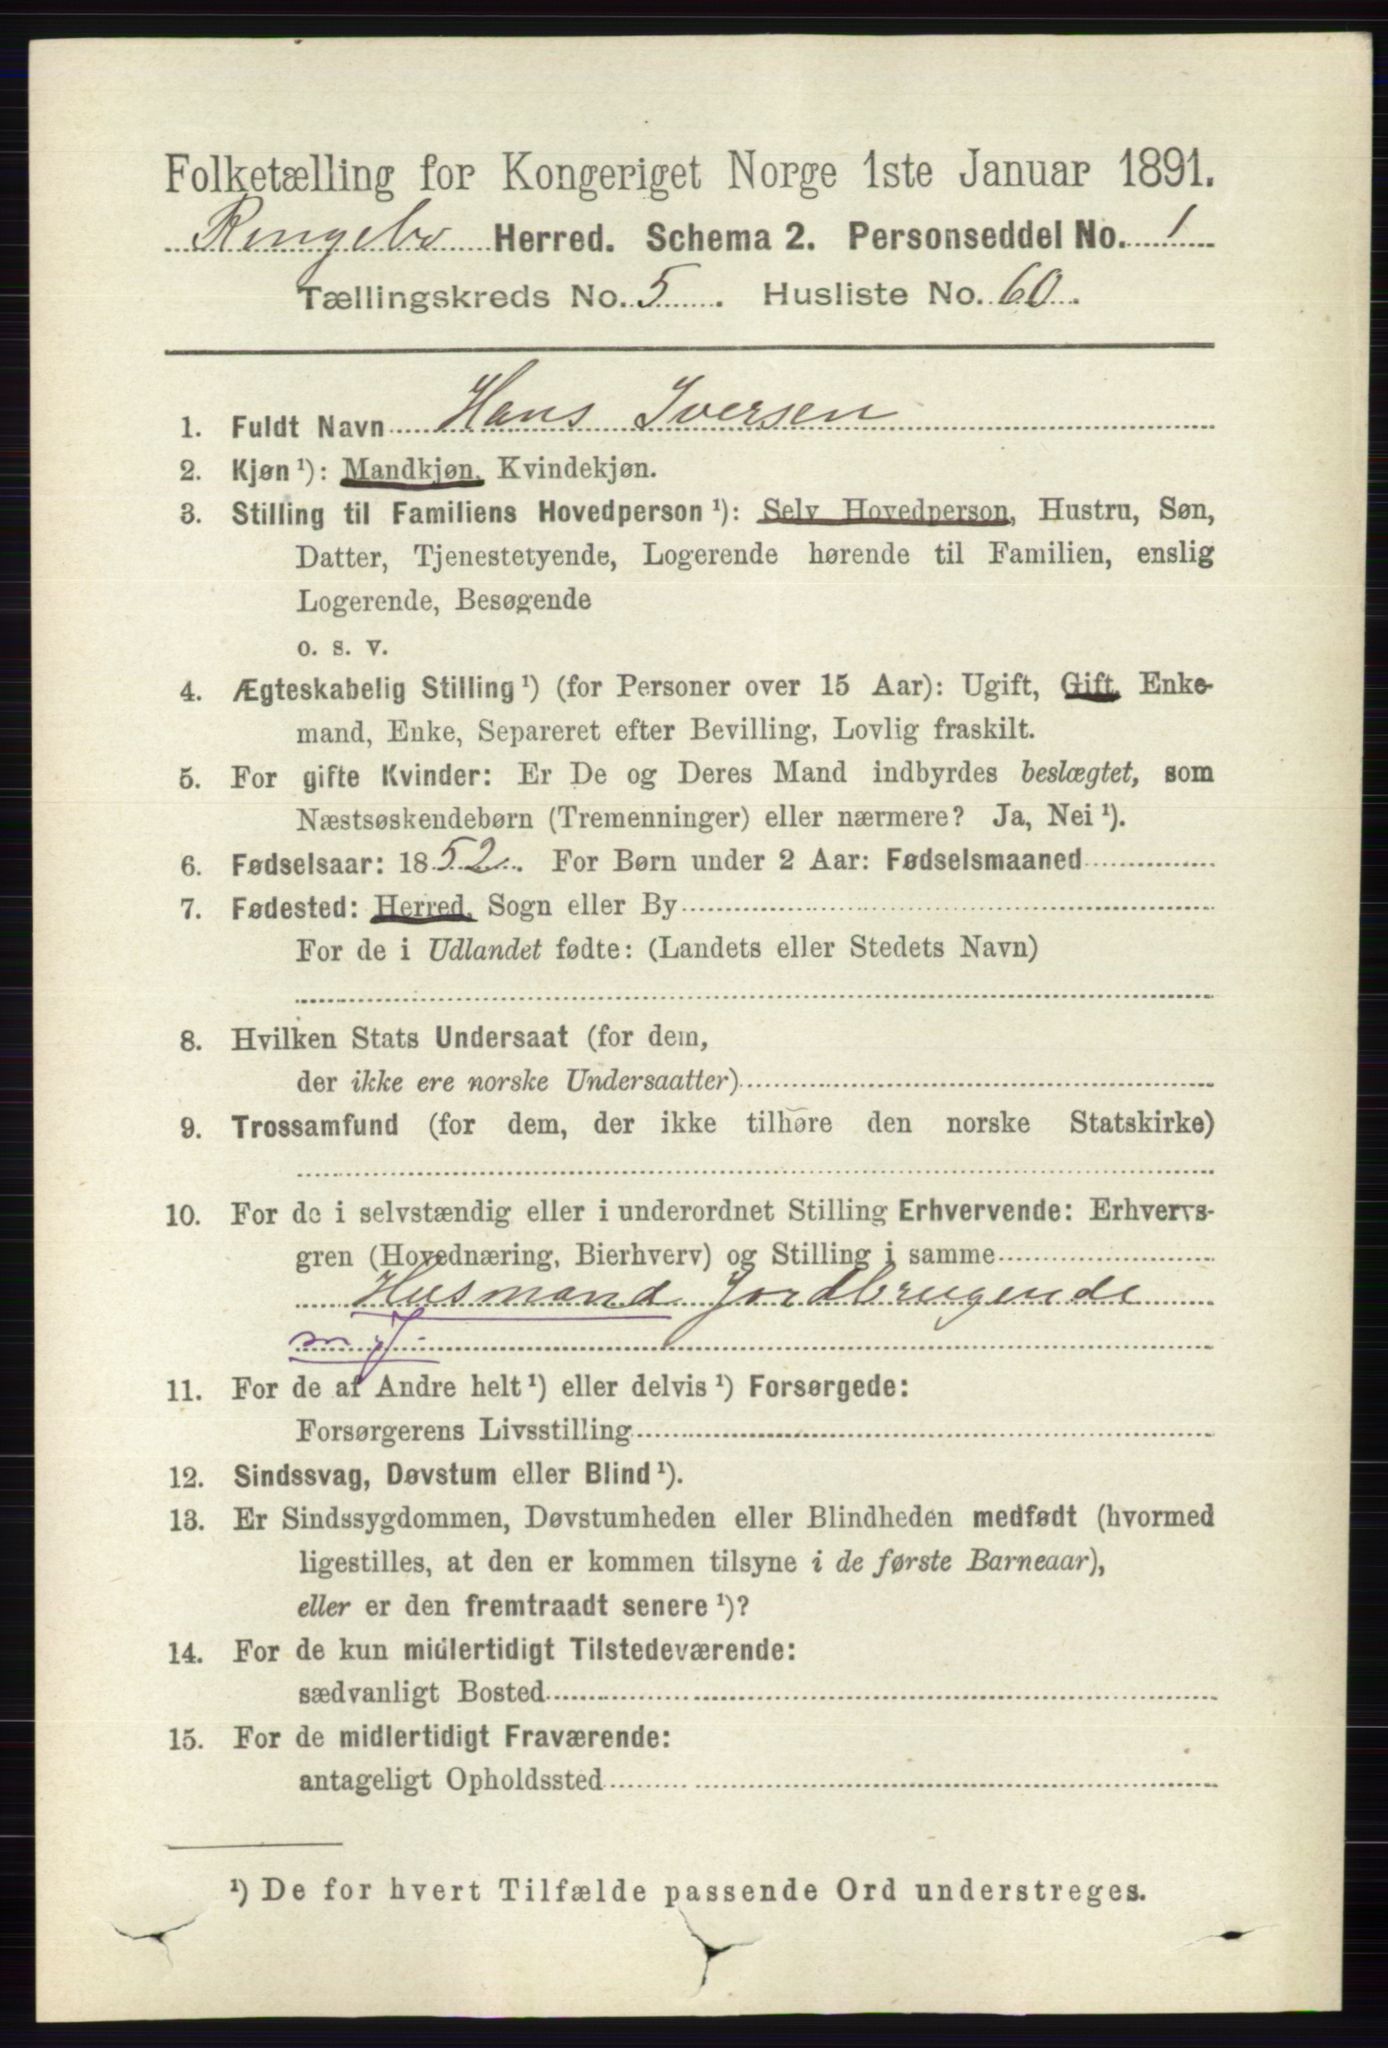 Folketælling for Kongeriget Norge 1ste Januar 1891.
Ringebo Herred. Schema 2. Personseddel No. 1
Tællingskreds No. 5. Husliste No. 60.
1. Fuldt Navn Hans Iversen
2. Kjøn¹): Mandkjøn, Kvindekjøn.
3. Stilling til Familiens Hovedperson¹): Selv Hovedperson, Hustru, Søn,
Datter, Tjenestetyende, Logerende hørende til Familien, enslig
Logerende, Besøgende
o. s. v.
4. Ægteskabelig Stilling¹) (for Personer over 15 Aar): Ugift, Gift, Enke-
mand, Enke, Separeret efter Bevilling, Lovlig fraskilt.
5. For gifte Kvinder: Er De og Deres Mand indbyrdes beslægtet, som
Næstsøskendebørn (Tremenninger) eller nærmere? Ja, Nei¹).
6. Fødselsaar: 1852. For Børn under 2 Aar: Fødselsmaaned
7. Fødested: Herred, Sogn eller By
For de i Udlandet fødte: (Landets eller Stedets Navn)
8. Hvilken Stats Undersaat (for dem,
der ikke ere norske Undersaatter)
9. Trossamfund (for dem, der ikke tilhøre den norske Statskirke)
10. For de i selvstændig eller i underordnet Stilling Erhvervende: Erhvervs-
gren (Hovednæring, Bierhverv) og Stilling i samme
Husmand Jordbrugende
m J
11. For de af Andre helt¹) eller delvis¹) Forsørgede:
Forsørgerens Livsstilling
12. Sindssvag, Døvstum eller Blind¹).
13. Er Sindssygdommen, Døvstumheden eller Blindheden medfødt (hvormed
ligestilles, at den er kommen tilsyne i de første Barneaar),
eller er den fremtraadt senere¹)?
14. For de kun midlertidigt Tilstedeværende:
sædvanligt Bosted
15. For de midlertidigt Fraværende:
antageligt Opholdssted
¹) De for hvert Tilfælde passende Ord understreges.